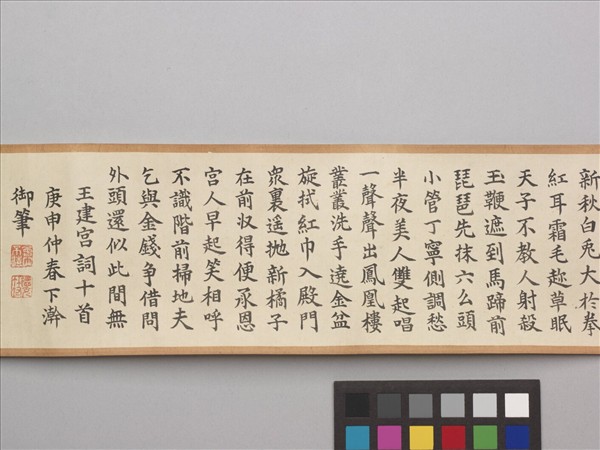 新秋白兎大於拳
紅耳霜毛趂草眠
天子不教人射殺
玉鞭遮到馬蹄前
琵琶先抹六么頭
小管丁寧側調愁
半夜美人雙起唱
一聲聲出鳳凰樓
叢叢洗手遶金盆
旋拭紅巾入殿門
衆裏遥抛新橘子
在前収得便承恩
宮人早起笑相呼
不識階前掃地夫
乞與金錢争借問
外頭還似此間無
王建宮詞十首
庚申仲春下澣
御筆